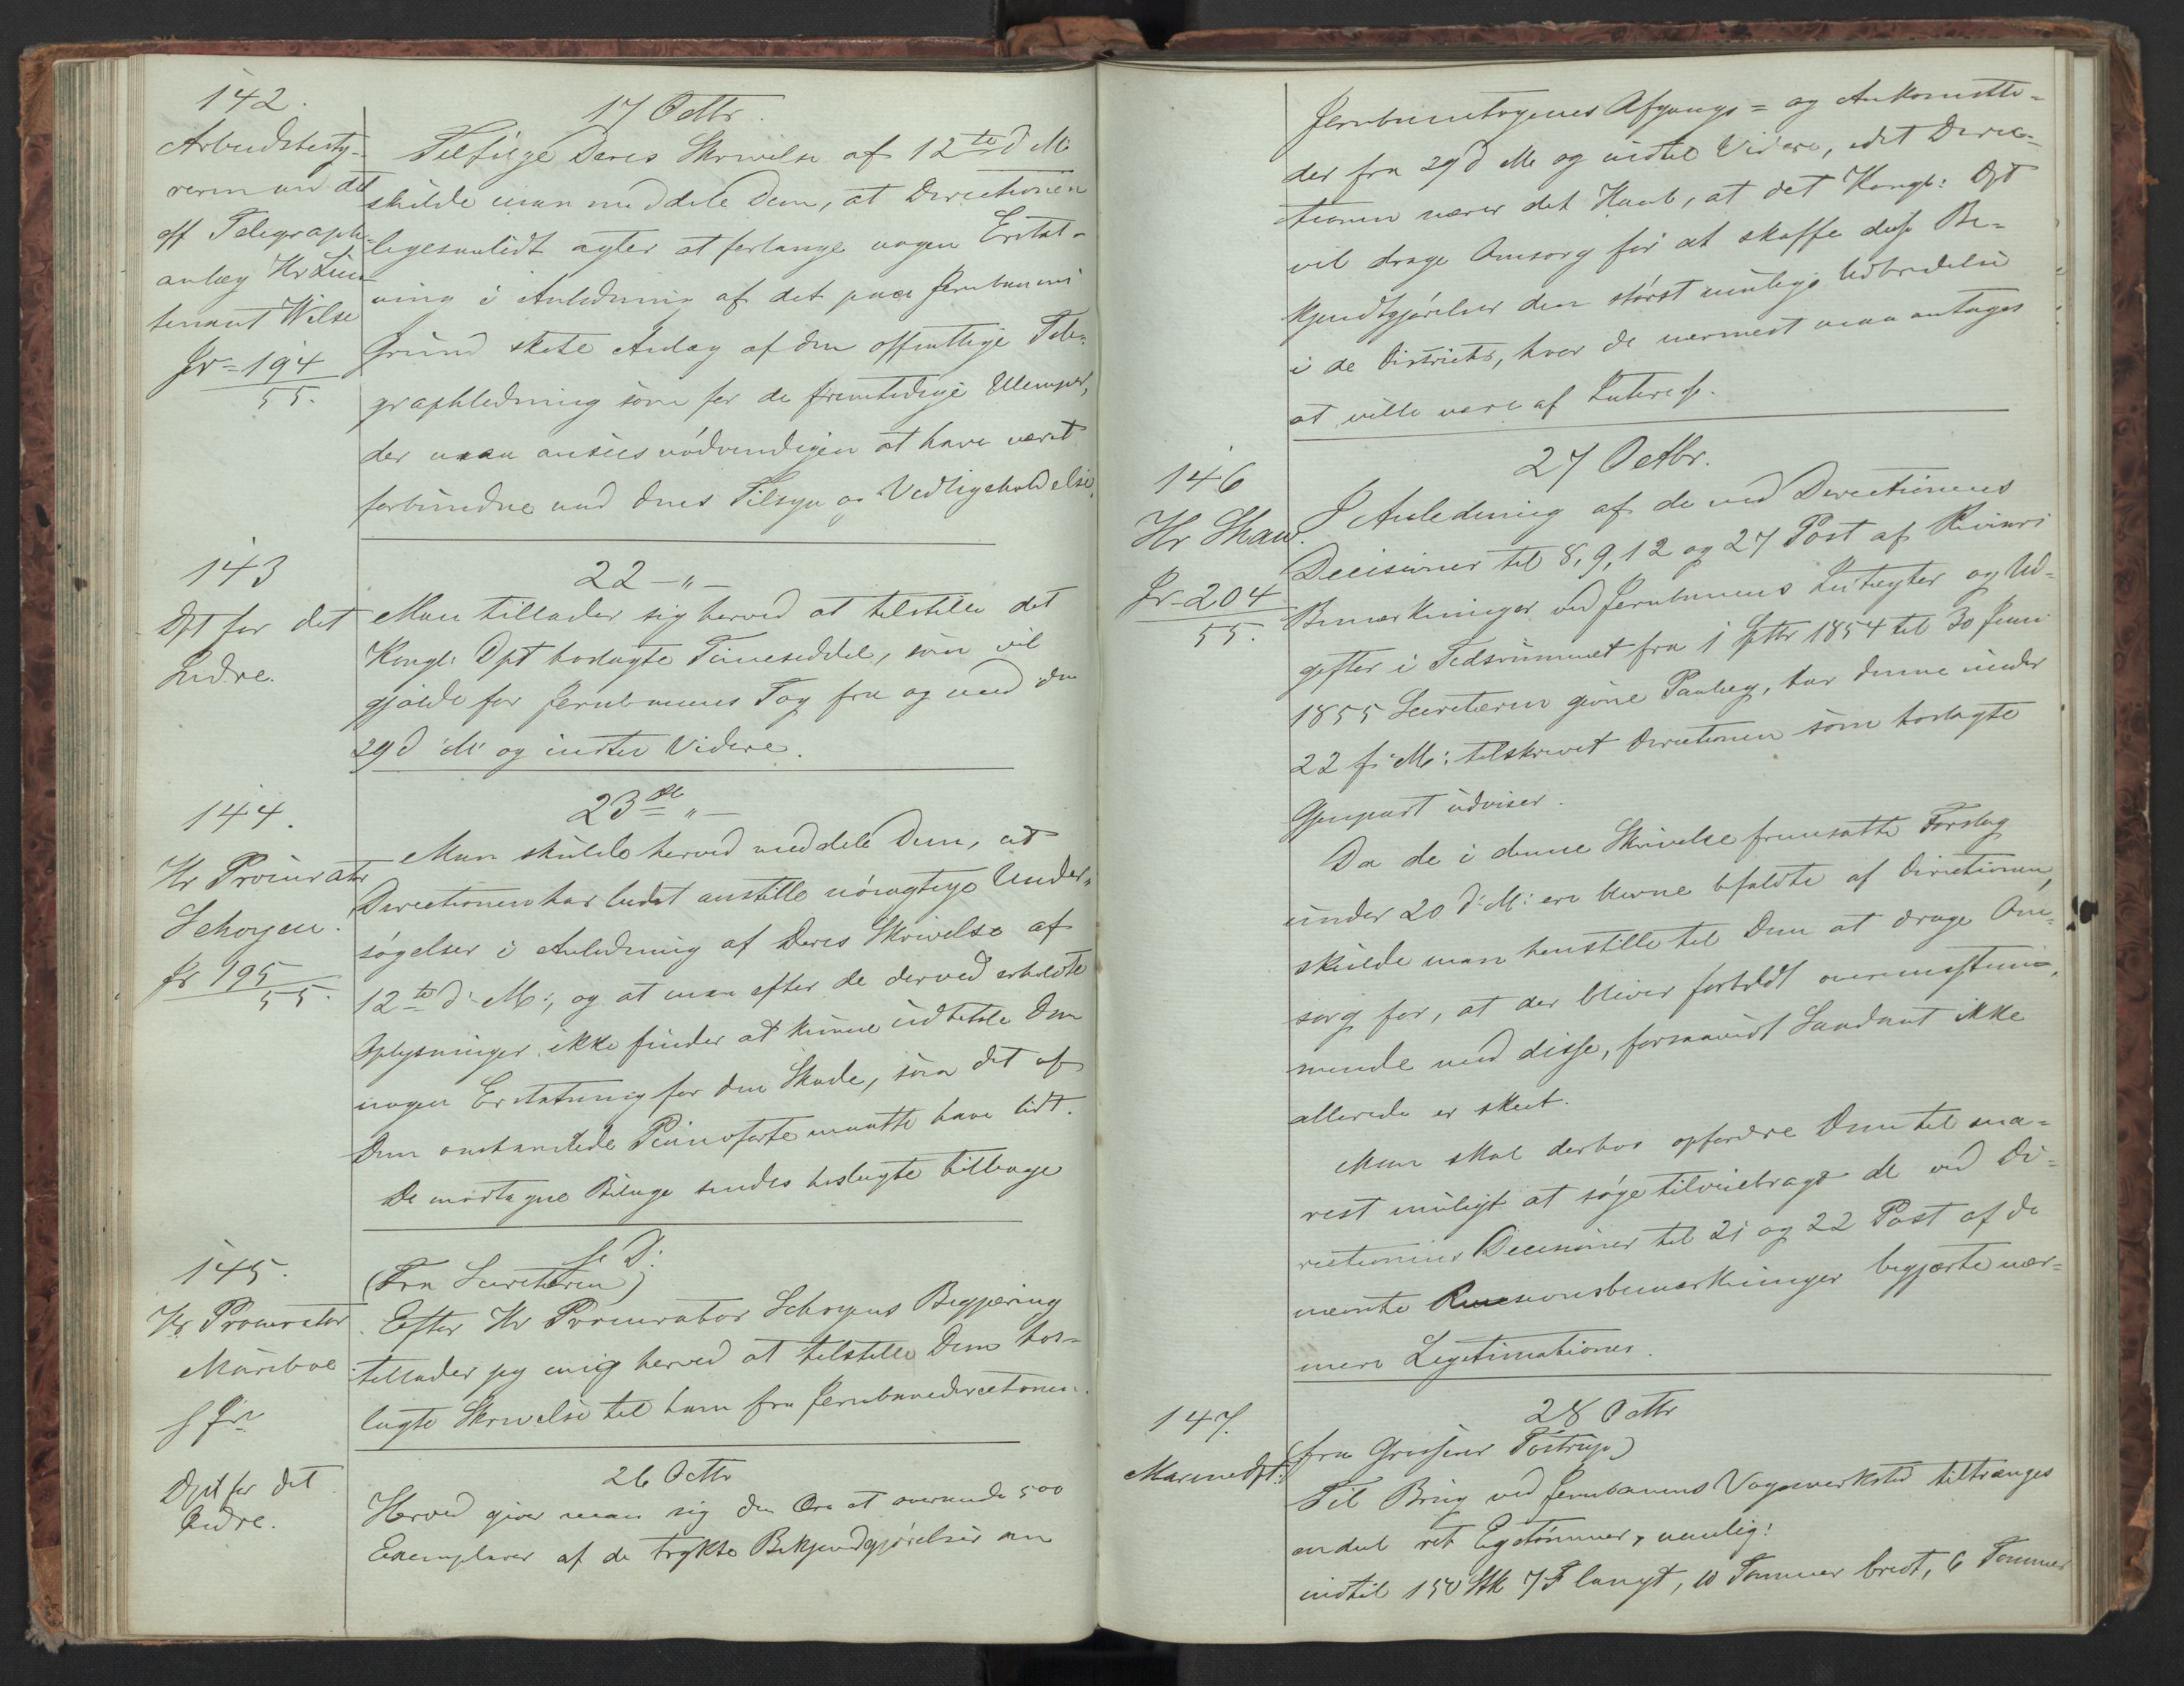 142.
Arbeidsbesty-
reren ved det
off Telegraph-
anlæg Hr Lieu-
tenant Wilse
Jr=194
55.
17 Octbr.
Tilfølge Deres Skrivelse af 12te d M
skulde man meddele Dem, at Directionen
ligesaalidt agter at forlange nogen Erstat-
ning i Anledning af det paa Jernbanens
Grund skete Anlæg af den offentlige Tele-
graphledning som for de fremtidige Ulemper,
der maa ansees nødvendigen at have været
forbundne med dens Tilsyn og Vedligeholdelse.
143
Dpt for det
Indre.
22 - " -
Man tillader sig herved at tilstille det
Kongl: Dpt hoslagte Timeseddel, som vil
gjælde for Jernbanens Tog fra og med den
29 d M og indtil Videre.
144.
Hr Procurator
Schoyen.
Jr 195
55.
23de " -
Man skulde herved meddele Dem, at
Directionen har ladet anstille nøiagtige Under-
søgelser i Anledning af Deres Skrivelse af
12te d: M:, og at man efter de derved erholdte
Oplysninger ikke finder at kunne udbetale Dem
nogen Erstatning for den Skade, som det af
Dem omhandlede Pianoforte maatte have lidt.
De modtagne Bilage sendes hoslagte tilbage
145.
Hr Procurator
Mariboe
f Jr
s D:
(Fra Secretæren)
Efter Hr Procurator Schoyens Begjæring
tillader jeg mig herved at tilstille Dem hos-
lagte Skrivelse til ham fra Jernbanedirectionen.
Dpt for det
Indre.
26 Octbr
Herved giver man sig den Ære at oversende 500
Exemplarer af de trykte Bekjendtgjørelser om
Jernbanetogenes Afgangs= og Ankomstti-
der fra 29 d M og indtil Videre, idet Direc-
tionen nærer det Haab, at det Kongl: Dpt
vil drage Omsorg for at skaffe disse Be-
kjendtgjørelser den størst mulige Udbredelse
i de Districter, hvor de nærmest maa antages
at ville være af Interesse.
146
Hr Shaw.
Jr=204
55.
27 Octbr.
I Anledning af de ved Directionens
Decisioner til 8, 9, 12 og 27 Post af Revisors
Bemærkninger ved Jernbanens Indtægter og Ud-
gifter i Tidsrummet fra 1 Septbr 1854 til 30 Juni
1855 Secretæren givne Paalæg, har denne under
22 f: M: tilskrevet Directionen som hoslagte
Gjenpart udviser.
Da de i denne Skrivelse fremsatte Forslag
under 20 d: M: ere blevne bifaldte af Directionen,
skulde man henstille til Dem at drage Om-
sorg for, at der bliver forholdt overensstem-
mende med disse, forsaavidt Saadant ikke
allerede er skeet.
Man skal derhos opfordre Dem til sna-
rest muligt at søge tilveiebragt de ved Di-
rectionens Decisioner til 21 og 22 Post af de
nævnte Revisionsbemærkninger begjærte nær-
mere Legitimationer.
147.
Marinedpt:
28 Octbr
(fra Grosserer Tostrup)
Til Brug ved Jernbanens Vognværksted tiltrænges
endeel ret Egetømmer, nemlig:
indtil 150 Stk 7 F langt, 10 Tommer bredt, 6 Tommer